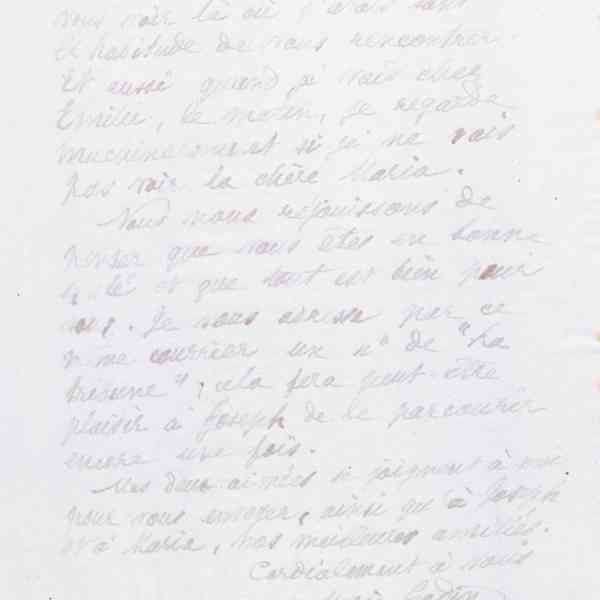 vous voir là où j'avais tant
l'habitude de vous rencontrer.
Et aussi quand je vais chez
Emilie, le matin, je regarde
machinalement si je ne vais
pas voir la chère Maria.
Nous nous réjouissons de
penser que vous êtes en bonne
santé et que tout est bien pour
vous. Je vous adresse par ce
même courrier un n° de "La
Tribune", cela fera peut-être
plaisir à Joseph de le parcourir
encore une fois.
Mes deux aimées se joignent à moi
pour vous envoyer, ainsi qu'à Joseph
et à Maria, nos meilleures amitiés.
Cordialement à vous